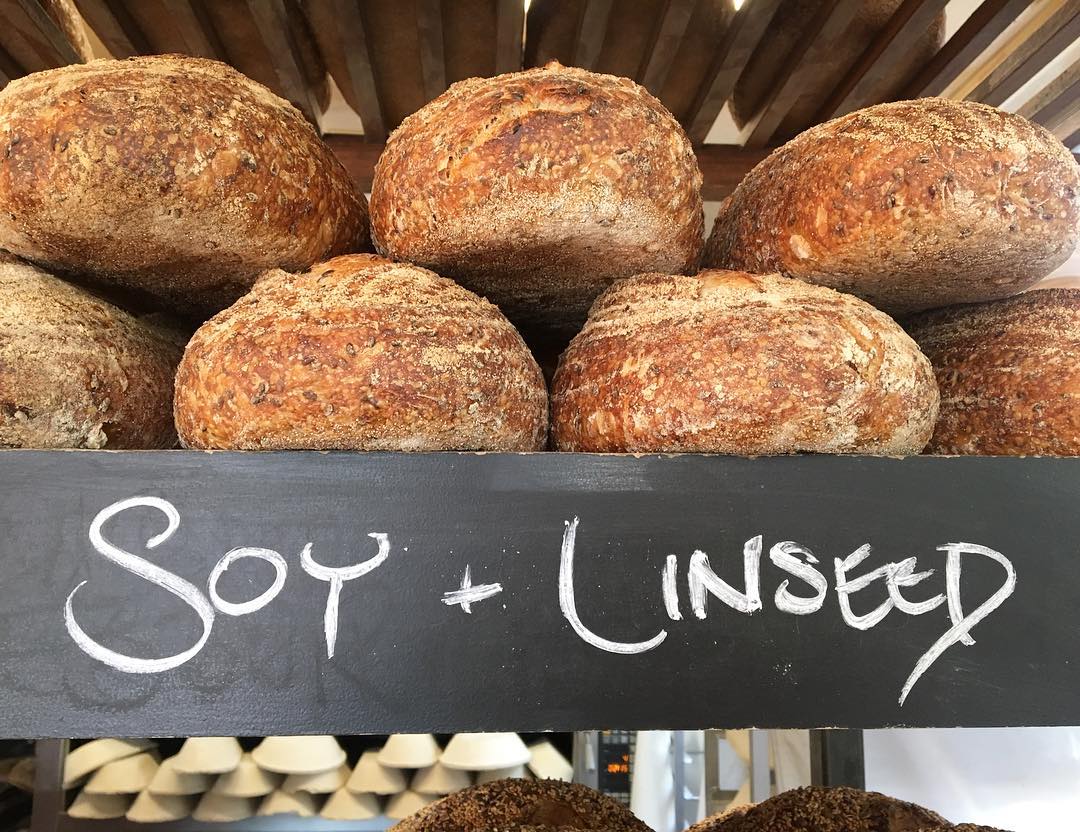 Soy + Linseed